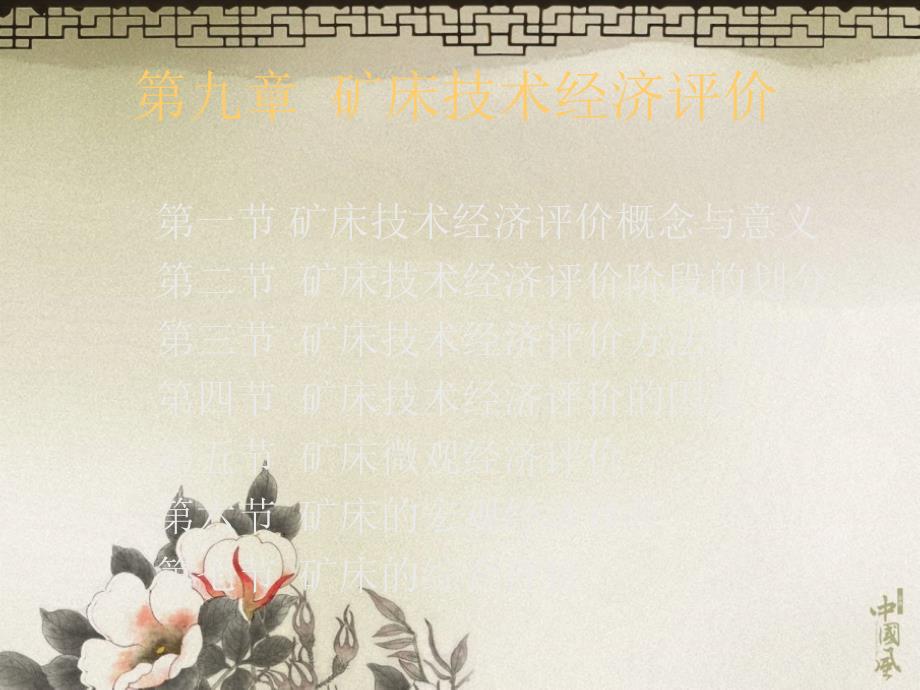 第九章 矿床技术经济评价
第一节 矿床技术经济评价概念与意义
第二节 矿床技术经济评价阶段的划分
第三节 矿床技术经济评价方法
第四节 矿床技术经济评价的因素
第五节 矿床微观经济评价
第六节 矿床的宏观
第七节 矿床的
中國風